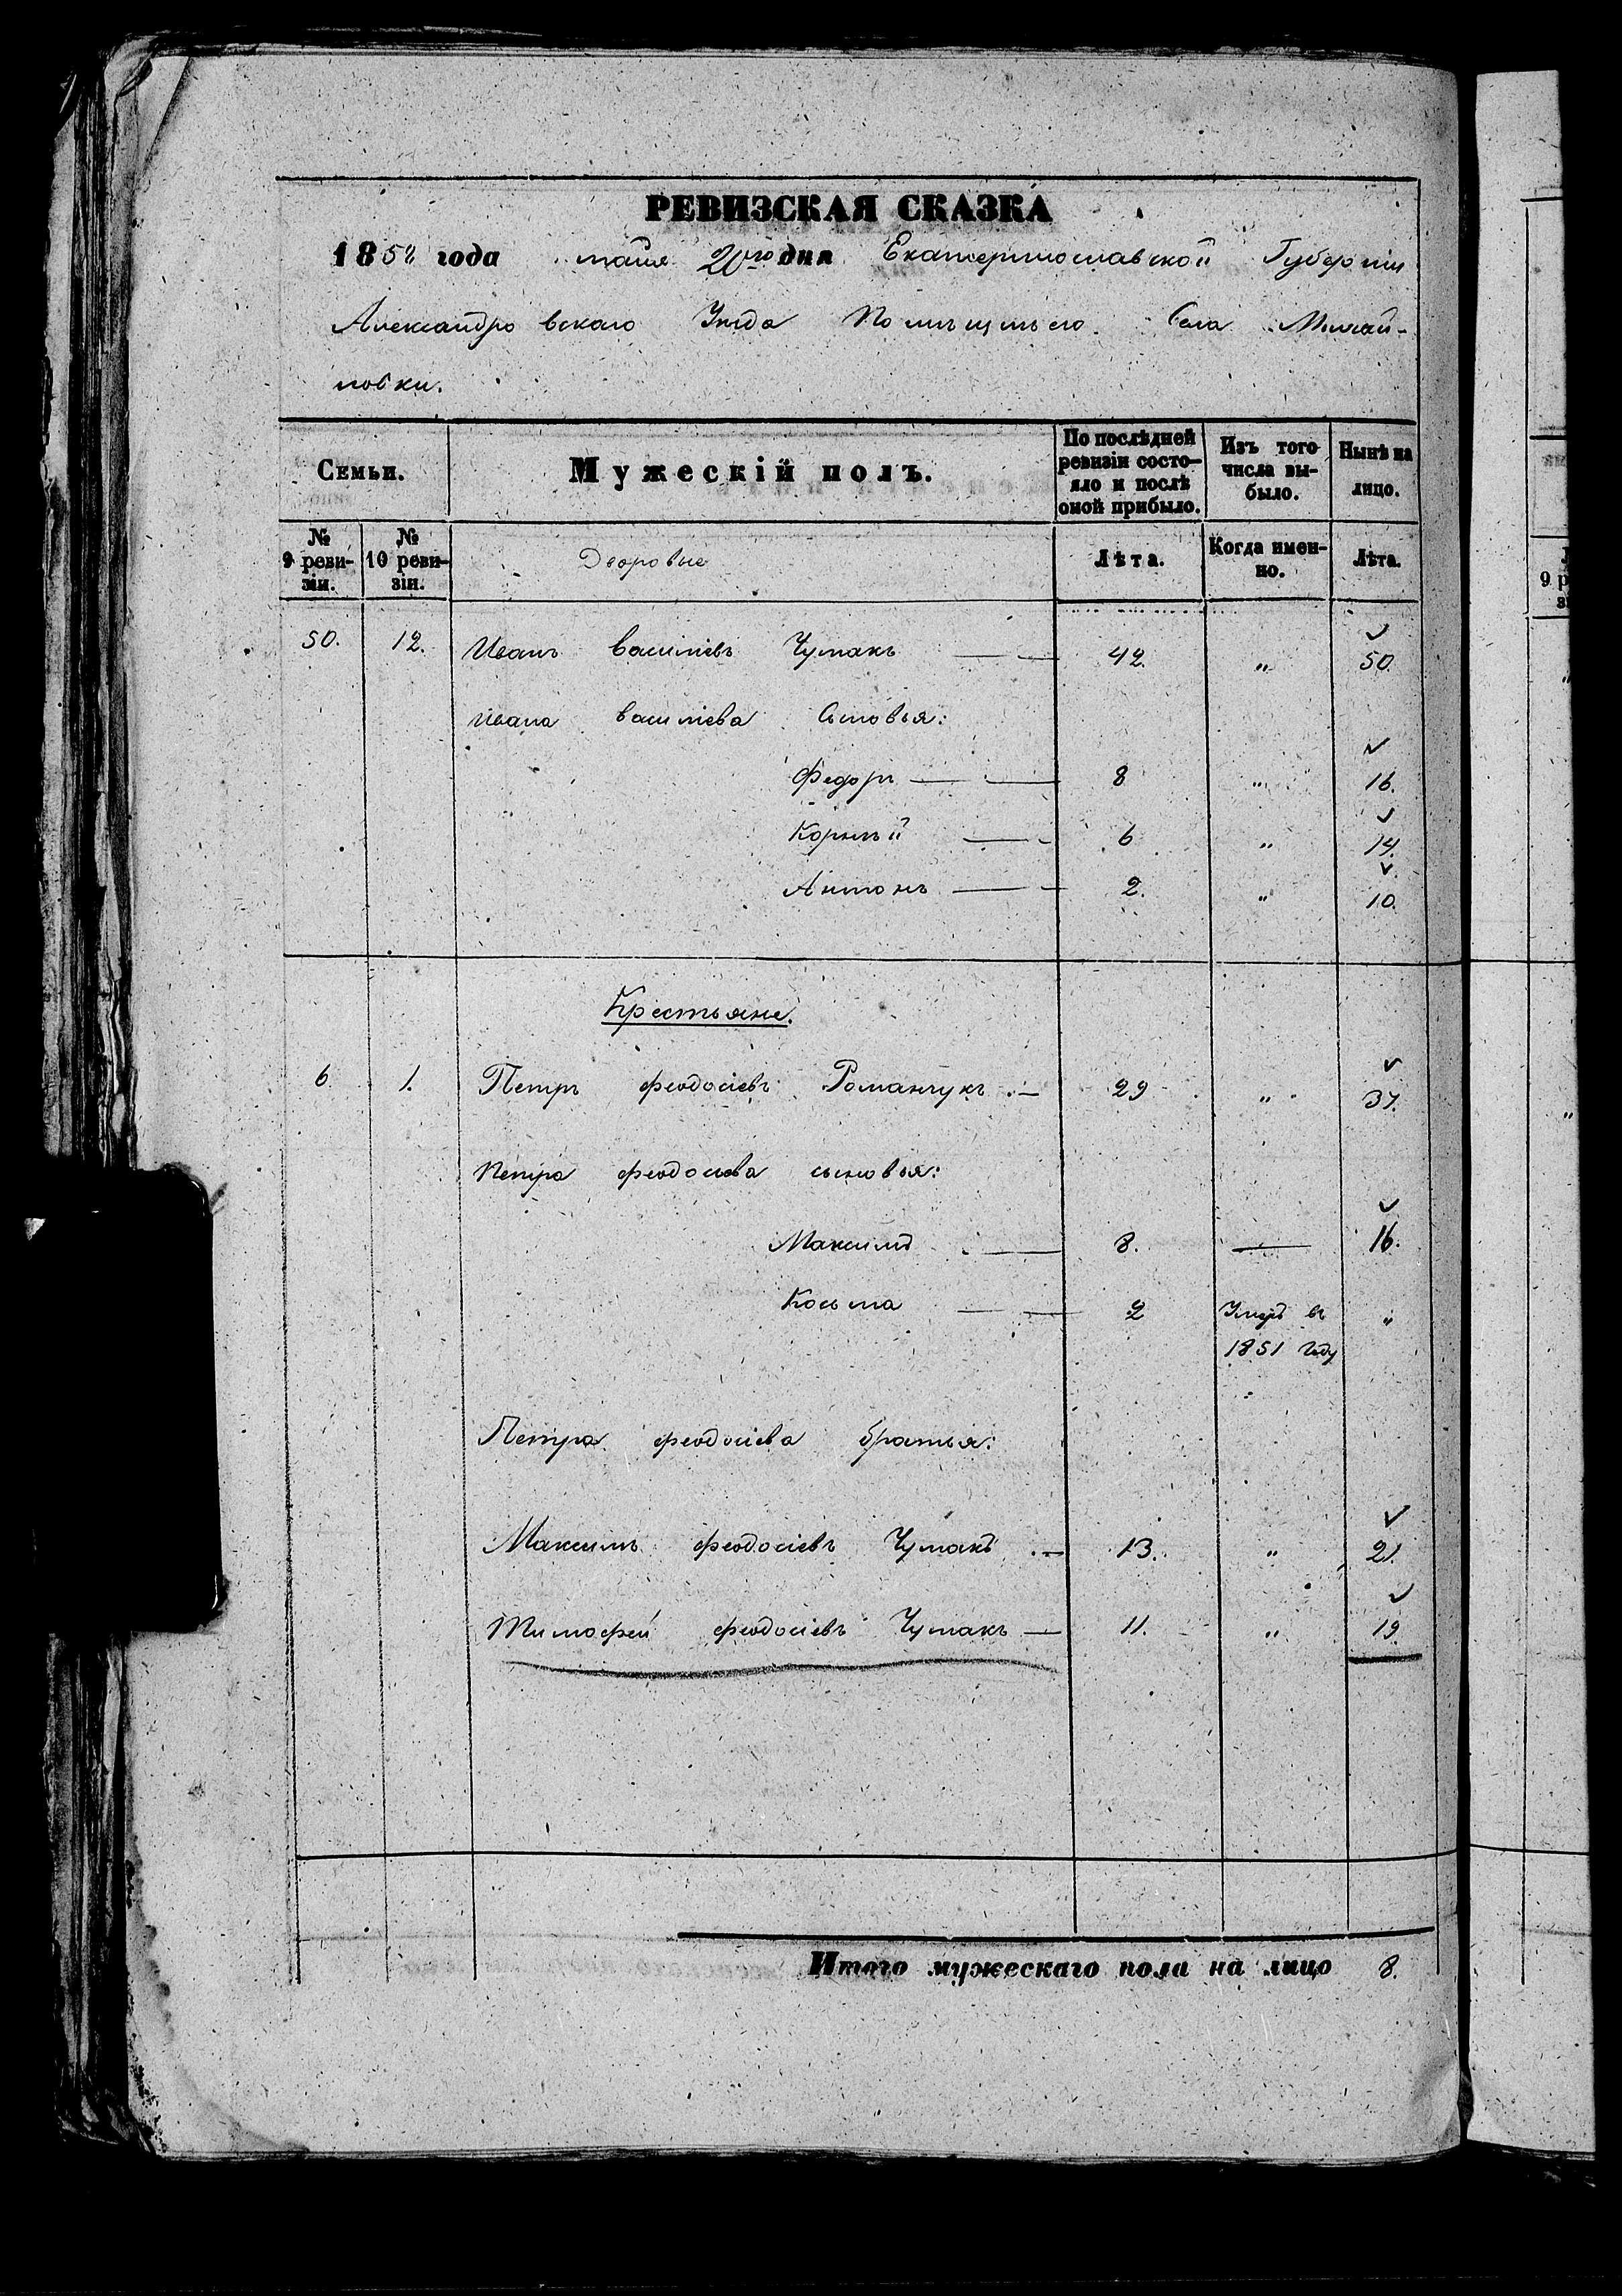 РЕВИЗСКАЯ СКАЗКА
1858 года маія 20го дня Екатеринославской Губерніи
Александровскаго Уѣзда Помѣщичьяго Села Михай-
ловки.
Семьи. Мужескій полъ. По послѣдней ревизіи состо- яло и послѣ оной прибыло. Изъ того числа вы- было. Нынѣ на лицо.
№ 9 реви- зіи. № 10 реви- зіи. Дворовые Лѣта. Когда имен- но. Лѣта.
50. 12. Иванъ Василіевъ Чумакъ — 42. „ 50.
Ивана Василіева Сыновья:
Федоръ — 8 „ 16.
Корнѣй — 6 „ 14.
Антонъ — 2. „ 10.
Крестьяне.
6 1. Петръ Феодосіевъ Романчукъ — 29 „ 37.
Петра Феодосіева сыновья:
Максимъ — 8. — 16.
Косьма — 2 Умеръ въ „
1851 году
Петра Феодосіева братья:
Максимъ Феодосіевъ Чумакъ — 13. „ 21.
Тимофей Феодосіевъ Чумакъ — 11. „ 19.
Итого мужескаго пола на лицо 8.